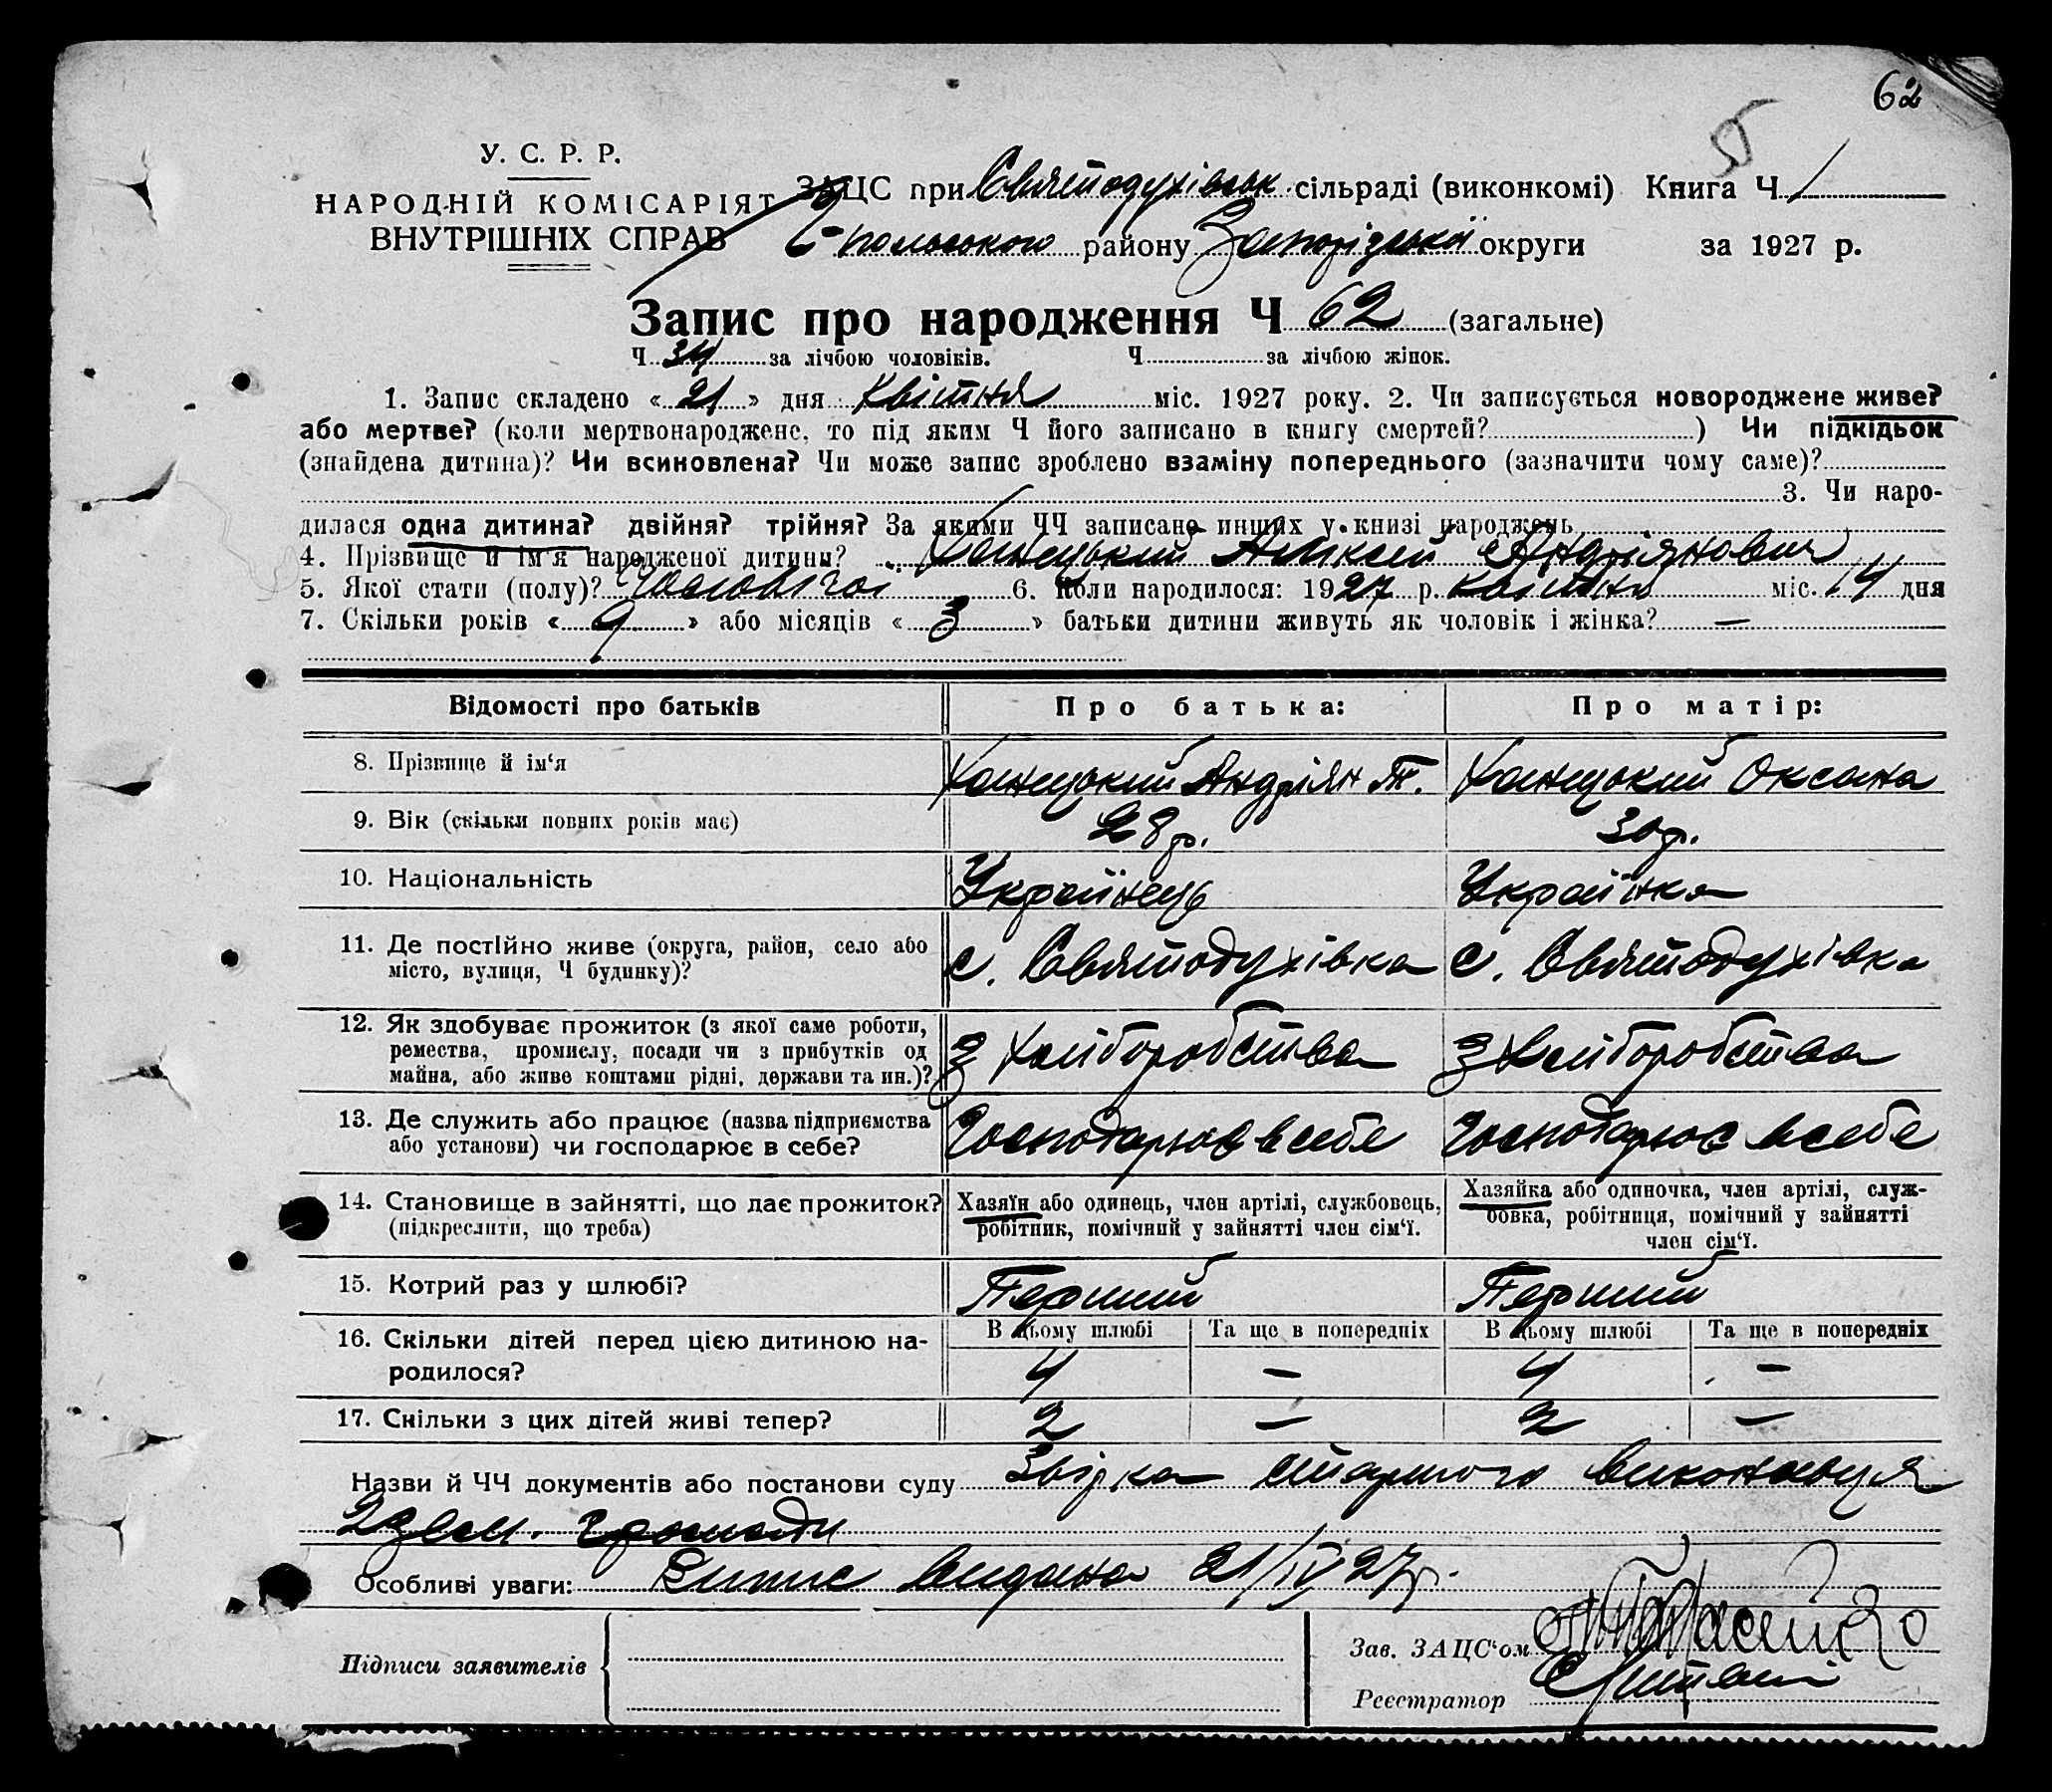 62
5
У. С. Р. Р.
НАРОДНІЙ КОМІСАРІЯТ
ВНУТРІШНІХ СПРАВ
ЗАЦС при Святодухівськ. сільраді (виконкомі) Книга Ч 1
польського району Запорізької округи за 1927 р.
Запис про народження Ч 62 (загальне)
Ч 34 за лічбою чоловіків. Ч за лічбою жінок.
1. Запис складено « 21 » дня Квітня міс. 1927 року. 2. Чи записується новороджене живе?
або мертве? (коли мертвонароджене, то під яким Ч його записано в книгу смертей? ) Чи підкідьок
(знайдена дитина)? Чи всиновлена? Чи може запис зроблено взаміну попереднього (зазначити чому саме)?
3. Чи наро-
дилася одна дитина? двійня? трійня? За якими ЧЧ записано инших у книзі народжень
4. Прізвище й ім'я народженої дитини? Ханецький Аліксей Андріянович
5. Якої стати (полу)? Чоловічої 6. Коли народилося: 1927 р. квітня міс. 14 дня
7. Скільки років « 9 » або місяців « 3 » батьки дитини живуть як чоловік і жінка? —
Відомості про батьків Про батька: Про матір:
8. Прізвище й ім'я Ханецький Андріян Т. Ханецький Оксана
9. Вік (скільки повних років має) 28 р. 30 р.
10. Національність Українець Українка
11. Де постійно живе (округа, район, село або
місто, вулиця, Ч будинку)? с. Святодухівка с. Святодухівка
12. Як здобуває прожиток (з якої саме роботи,
ремества, промислу, посади чи з прибутків од
майна, або живе коштами рідні, держави та ин.)? З хліборобства З хліборобства
13. Де служить або працює (назва підприємства
або установи) чи господарює в себе? Господарює в себе Господарює в себе
14. Становище в зайнятті, що дає прожиток?
(підкреслити, що треба)
Хазяїн або одинець, член артілі, службовець,
робітник, помічний у зайнятті член сім'ї.
Хазяйка або одиночка, член артілі, служ-
бовка, робітниця, помічний у зайнятті
член сім'ї.
15. Котрий раз у шлюбі? Перший Перший
16. Скільки дітей перед цією дитиною на-
родилося?
В цьому шлюбі Та ще в попередніх В цьому шлюбі Та ще в попередніх
4 — 4 —
17. Скільки з цих дітей живі тепер? 2 — 2 —
Назви й ЧЧ документів або постанови суду Звірка старшого виконавця
2 зем. громади
Особливі уваги: Випис видана 21/IV 27 р.
Підписи заявителів
Зав. ЗАЦС'ом
Реєстратор